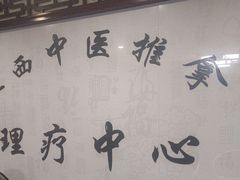 中医推拿
理疗中心